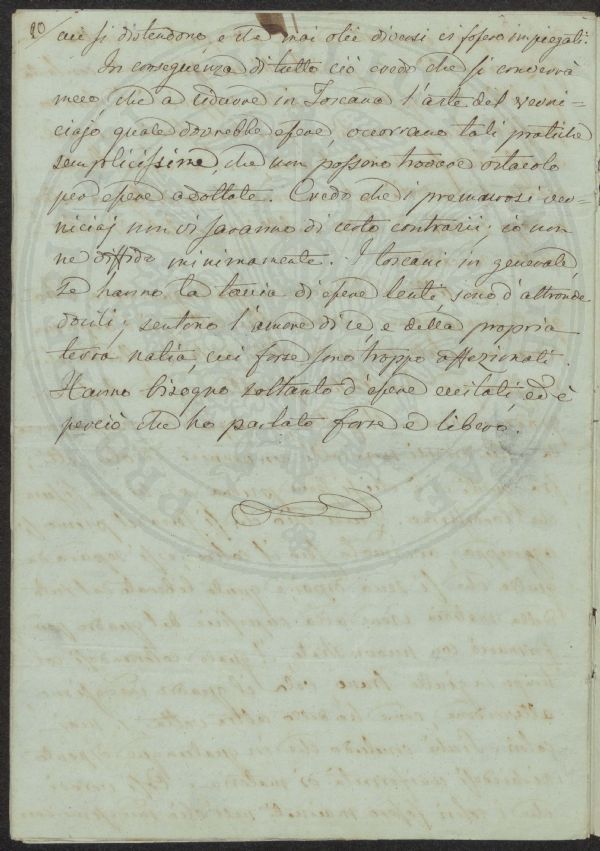 20
cui si distendono, e che mai olii diversi vi fossero impiegati.
In conseguenza di tutto ciò credo che si converrà
meco, che a ridurre in Toscana l'arte del verni=
ciajo quale dovrebbe essere, occorrano tali pratiche
semplicissime, che non possono trovare ostacolo
per essere adottate. Credo che i premurosi ver=
niciaj non vi saranno di certo contrarii; io non
ne diffido minimamente. I toscani in generale,
se hanno la taccia di essere lenti, sono d'altronde
docili; sentono l'amore di se, e della propria
terra natia, cui forse sono troppo affezionati.
Hanno bisogno soltanto d'essere eccitati, ed è
perciò che ho parlato forse e libero.